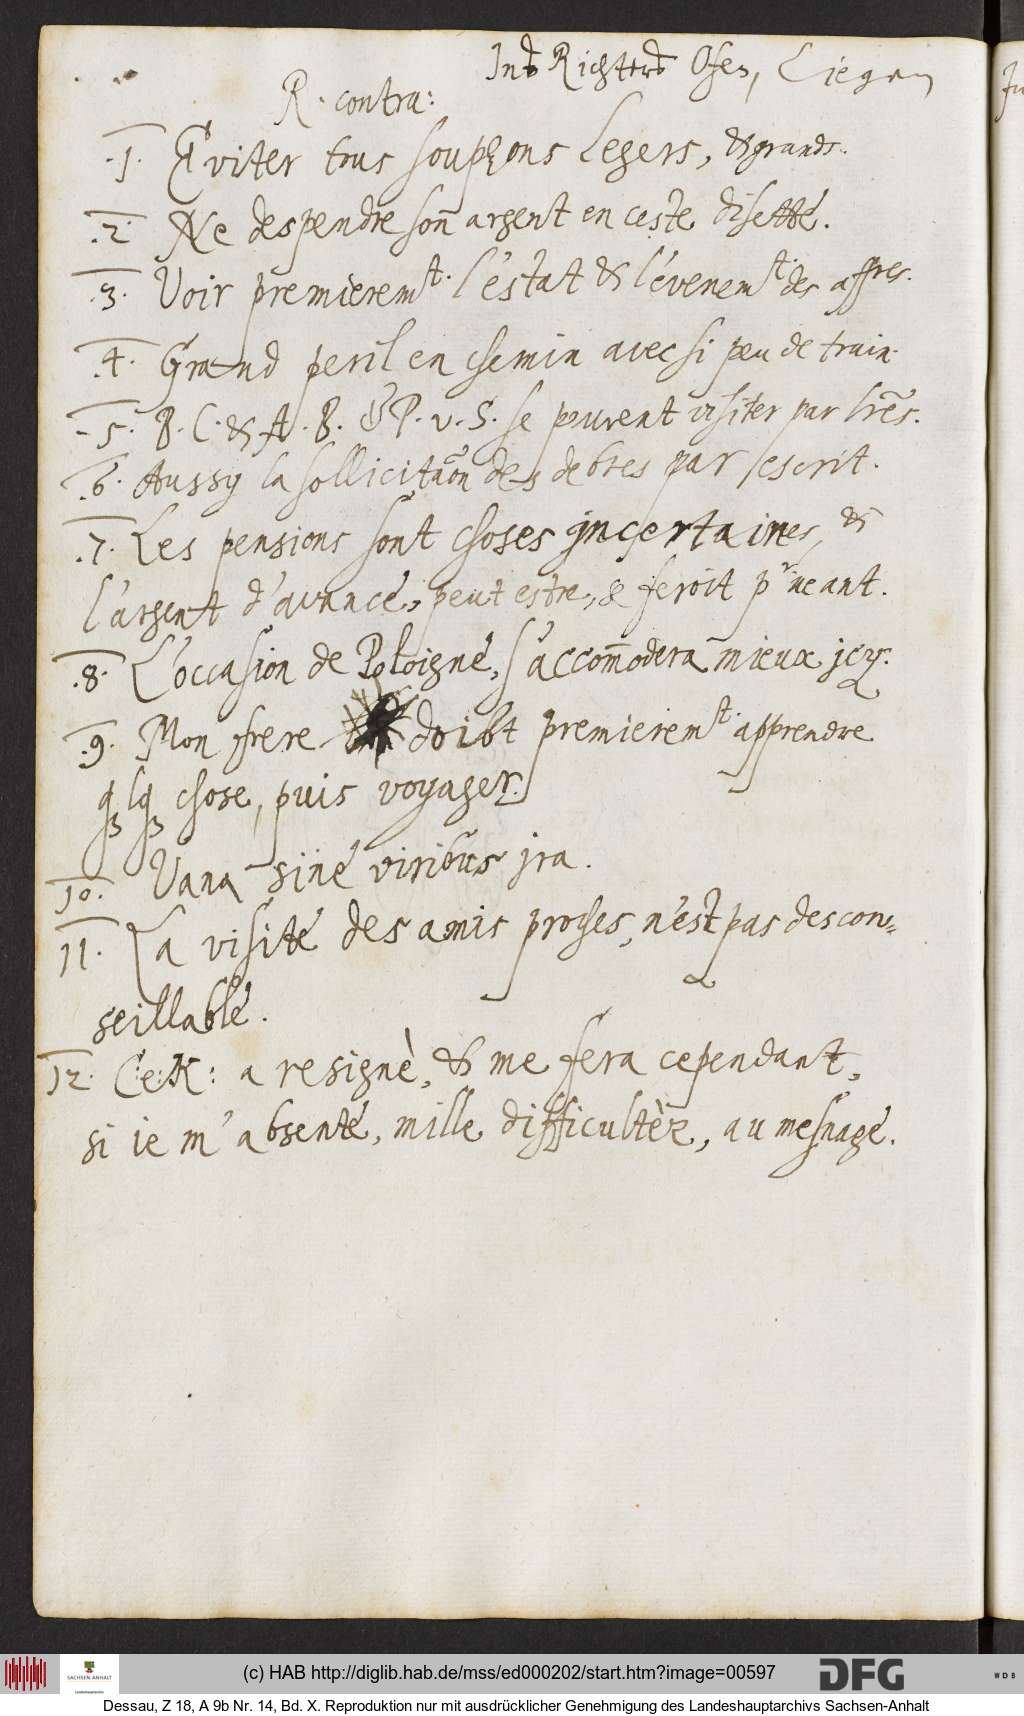 R. contra:
.1. Eviter tous soupçons legers, & grands.
.2. Ne despendre son argent en ceste disette.
.3. Voir premierem.t l'estat & l'evenem.t des affres.
.4. Grand peril en chemin avec si peu de train.
.5. B. C. & A. B. & P. v. S. se peuvent visiter par lrēs.
.6. Aussy la sollicitaōn des debtes par escrit.
.7. Les pensions sont choses jncertaines, &
l'argent d'avance, peut estre, se feroit p.r neant.
.8. L'occasion de Poloigne, s'accom̄odera mieux jcy.
.9. Mon frere doibt premierem.t apprendre
qlq chose, puis voyager.
10. Vana sine viribus jra.
11. La visite des amis proches, n'est pas descon=
seillable.
12. C:e:K: a resignè, & me fera cependant,
si ie m'absente, mille difficultèz, au mesnage.
(c) HAB http://diglib.hab.de/mss/ed000202/start.htm?image=00597
SACHSEN-ANHALT
Landeshauptarchiv
DFG
WDB
Dessau, Z 18, A 9b Nr. 14, Bd. X. Reproduktion nur mit ausdrücklicher Genehmigung des Landeshauptarchivs Sachsen-Anhalt